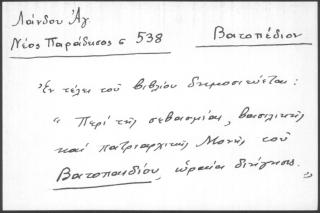 Λάνδου Ἀγ.
Νέος Παράδεισος σ 538
Βατοπέδιον
Ἐν τέλει τοῦ βιβλίου δημοσιεύεται:
"Περί τῆς σεβασμίας, βασιλικῆς
καί πατριαρχικῆς Μονῆς τοῦ
Βατοπαιδίου, ὡραία διήγησις."